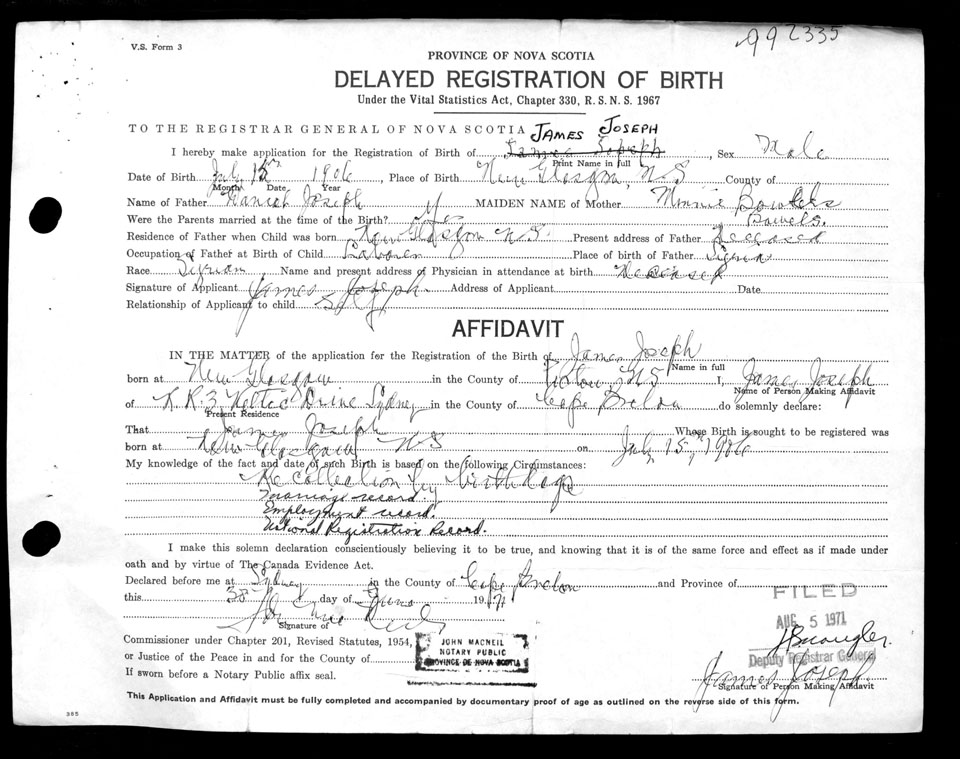 992335
V.S. Form 3
PROVINCE OF NOVA SCOTIA
DELAYED REGISTRATION OF BIRTH
Under the Vital Statistics Act, Chapter 330, R. S. N. S. 1967
TO THE REGISTRAR GENERAL OF NOVA SCOTIA JAMES JOSEPH
I hereby make application for the Registration of Birth of James Joseph, Sex Male
Print Name in full
Date of Birth July 15th 1906, Place of Birth New Glasgow, N.S County of
Month Date Year
Name of Father Joseph MAIDEN NAME of Mother Minnie Bowles
Were the Parents married at the time of the Birth? Yes Bowels.
Residence of Father when Child was born New Glasgow N S. Present address of Father Deceased
Occupation of Father at Birth of Child Laborer Place of birth of Father Syria
Race Syrian Name and present address of Physician in attendance at birth Deceased
Signature of Applicant James Joseph Address of Applicant Date
Relationship of Applicant to child Self
AFFIDAVIT
IN THE MATTER of the application for the Registration of the Birth of James Joseph
Name in full
born at New Glasgow in the County of Pictou, NS I, James Joseph
Name of Person Making Affidavit
of R.R.3 Keltic Drive Sydney in the County of Cape Breton do solemnly declare:
Present Residence
That James Joseph Whose Birth is sought to be registered was
born at New Glasgow N S on July 15, 1906
My knowledge of the fact and date of such Birth is based on the following Circumstances:
Recollection by birthdays
Marriage record
Employment record.
National Registration Record.
I make this solemn declaration conscientiously believing it to be true, and knowing that it is of the same force and effect as if made under
oath and by virtue of The Canada Evidence Act.
Declared before me at Sydney in the County of Cape Breton and Province of
this 30 day of June 1971
Signature of
FILED
AUG 5 1971
Deputy Registrar General
Commissioner under Chapter 201, Revised Statutes, 1954,
or Justice of the Peace in and for the County of
If sworn before a Notary Public affix seal.
JOHN MACNEIL
NOTARY PUBLIC
PROVINCE DE NOVA SCOTIA
James Joseph
Signature of Person Making Affidavit
This Application and Affidavit must be fully completed and accompanied by documentary proof of age as outlined on the reverse side of this form.
385